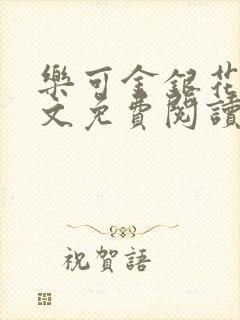 樂可金銀花
文免費閱讀
祝賀語